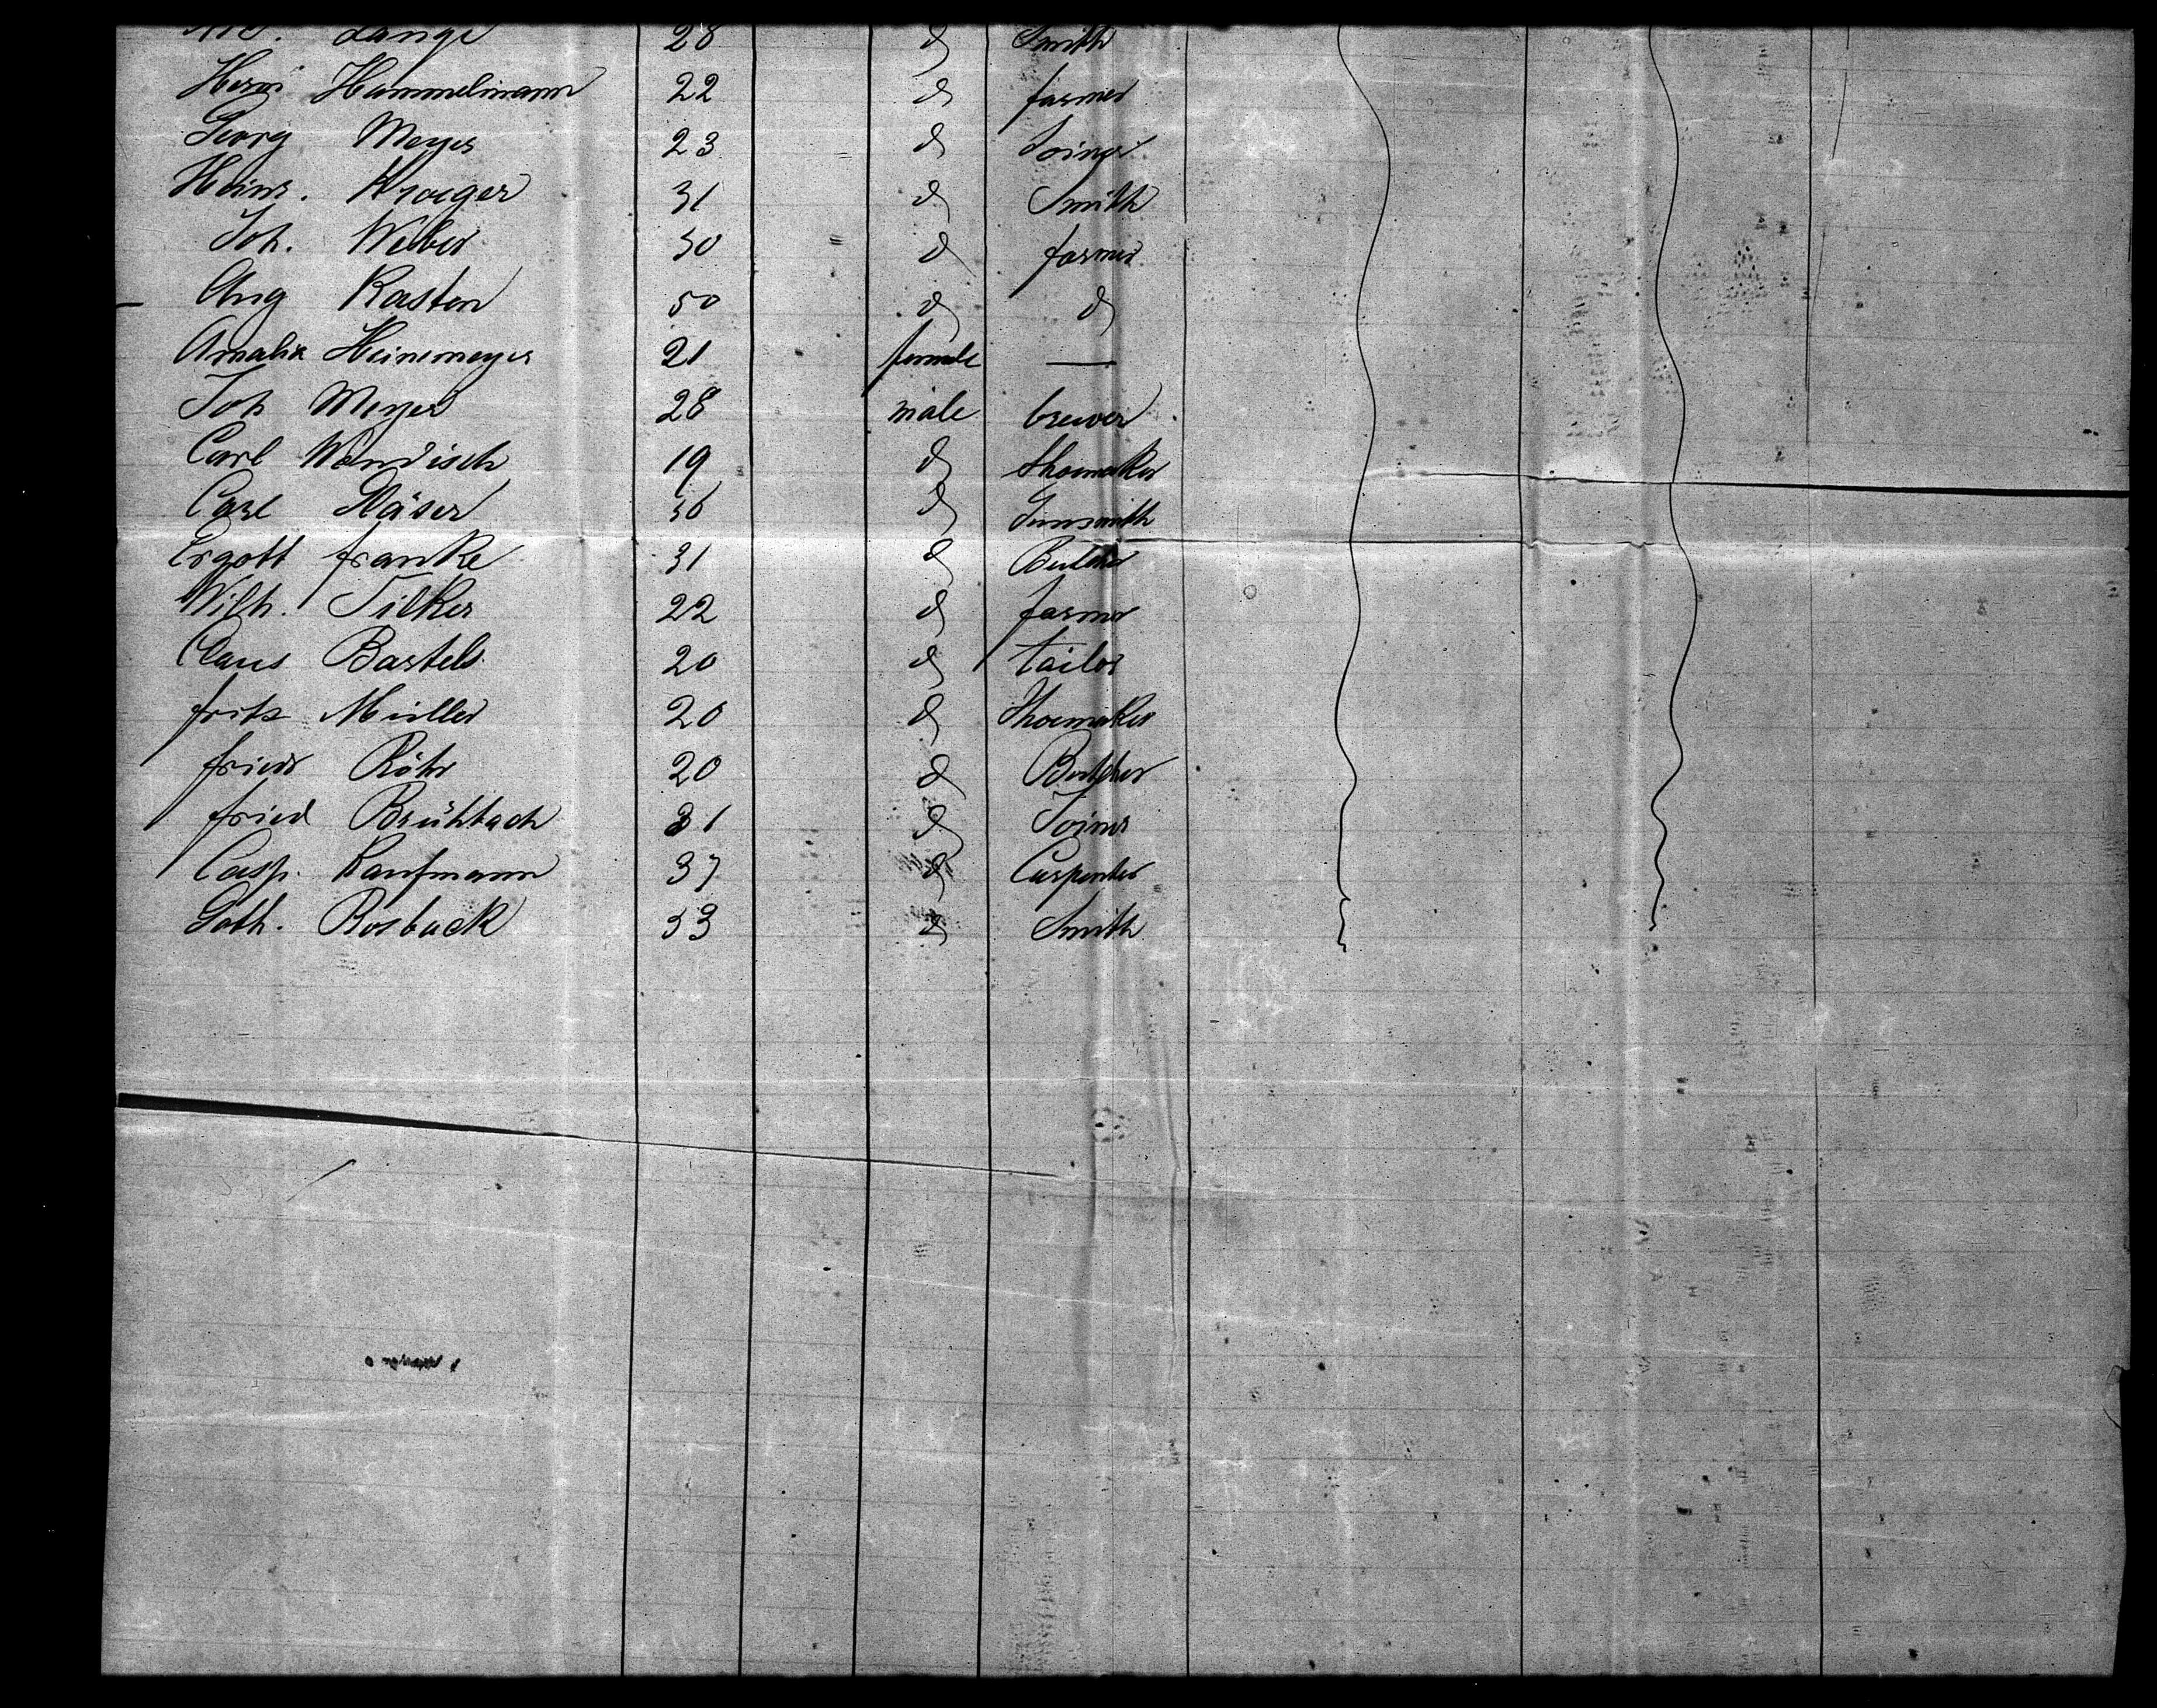 Lange 28 d Smith
Herm Hummelmann 22 d farmer
Georg Meyer 23 d Joiner
Heinr. Kroeger 31 d Smith
Joh. Weber 30 d farmer
Aug Kasten 50 d d
Amalia Heinemeyer 21 female —
Joh Meyer 28 male brewer
Carl Wöndisch 19 d Shoemaker
Carl Mäser 36 d Gunsmith
Ergott Franke 31 d Butcher
Wilh. Tilker 22 d farmer
Claus Bartels 20 d tailor
Fritz Müller 20 d Shoemaker
Friedr Röhr 20 d Butcher
Fried Brühbach 31 d Joiner
Casp. Kaufmann 37 d Carpenter
Goth. Rosback 33 d Smith